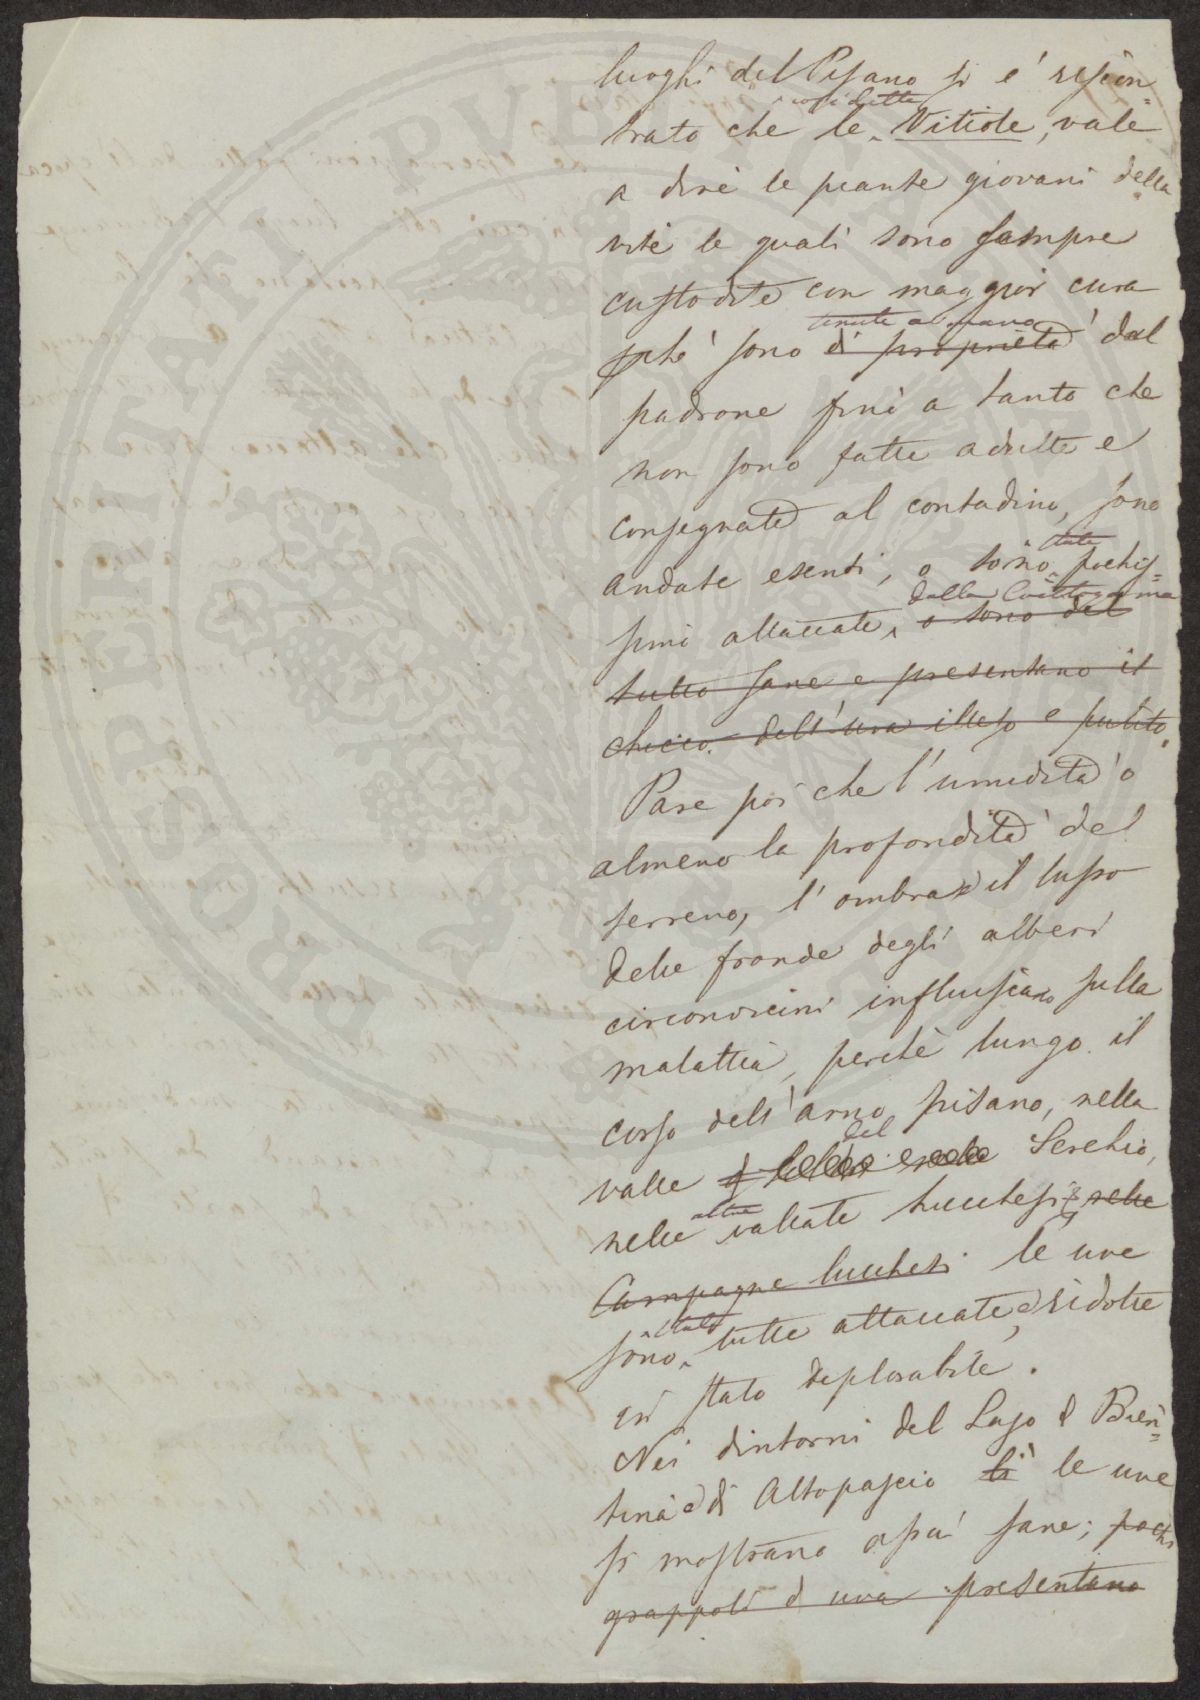 luoghi del Pisano si e' riscon=
trato che le così dette Vitiole, vale
a dire le piante giovani della
vite le quali sono sempre
custodite con maggior cura
pchè sono di proprietà tenute a mano dal
padrone fini a tanto che
non sono fatte adulte e
consegnate al contadino, sono
andate esenti, o sono state pochis=
simi attaccate, dalla Crittogama o sono del
tutto sane e presentano il
chicco dell'uva illeso e pulito.
Pare poi che l'umidità o
almeno la profondità del
terreno, l'ombra il lusso
delle fronde degli alberi
circonvicini influiscano sulla
malattia, perchè lungo il
corso dell'arno pisano, nella
valle del Serchio,
nelle altre vallate lucchesi, nelle
Campagne lucchesi le uve
sono state tutte attaccate, e ridotte
in stato deplorabile.
Nei dintorni del Lago d Bien=
tina e di Altopascio li le uve
si mostrano assai sane; pochi
grappoli d uva presentano
PROSPERITATI PVBLICAE